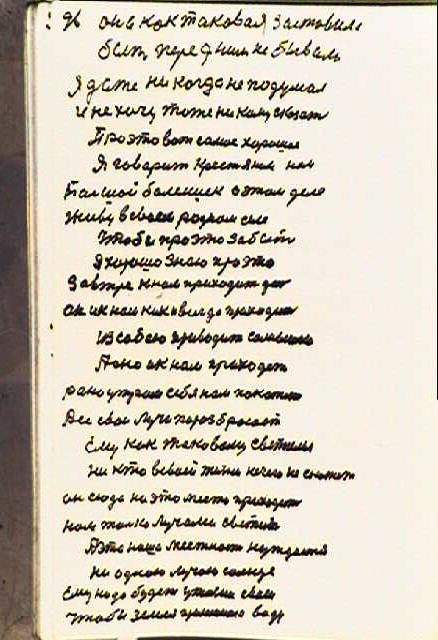 её она как таковая заставила
быть перед ним не бывало
Я даже никогда не подумал
и не хочу тоже никому сказать
Про это вот самое хорошее
Я говорит крестьянин нам
Большой болельщик в этом деле
Живу в своём родном селе
Чтобы про это забыть
Я хорошо знаю про это
Завтра к нам приходит
он к нам как и всегда приходит
Из собою приводит
Рано он к нам приходит
рано утром себя нам покажет
Все свои лучи поразбросает
Ему как таковому светилу
Ни кто в своей жизни ничего не скажет
он сюда на это место приходит
нам только лучами светит
А эта наша местность нуждается
Ни одною лучою солнце
Ему надо будет условия свои
Чтобы земля принимала воду